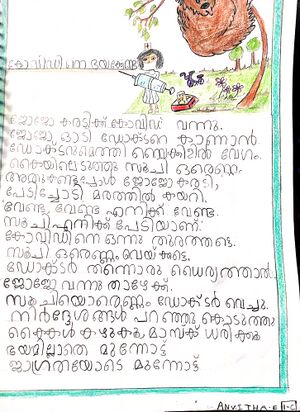 കോവിഡിനെ ഭയക്കേണ്ട
ജോജോ കരടിക്ക് കോവിഡ് വന്നു.
ജോജോ ഓടി ഡോക്ടറെ കാണാൻ.
ഡോക്ടറുമെത്തി വേഗം.
കൈയിലെടുത്തു സൂചി ഒരെണ്ണം.
അതുകണ്ടപ്പോൾ ജോജോ കരടി,
പേടിച്ചോടി മരത്തിൽ കയറി.
വേണ്ട, വേണ്ട എനിക്ക് വേണ്ട.
സൂചി എനിക്ക് പേടിയാണ്.
കോവിഡിനെ ഒന്നു തുരത്തട്ടെ.
സൂചി ഒരെണ്ണം വേയ്ക്കട്ടെ.
ഡോക്ടർ തന്നൊരു ധൈര്യത്താൽ
ജോജോ വന്നു താഴേക്ക്.
സൂചിയൊരെണ്ണം ഡോക്ടർ വെച്ചു.
നിർദ്ദേശങ്ങൾ പറഞ്ഞു കൊടുത്തു
കൈകൾ കഴുകുക, മാസ്ക് ധരിക്കുക
ഭയമില്ലാതെ മുന്നോട്ട്
ജാഗ്രതയോടെ മുന്നോട്ട്
ANVITHA-E 1-C